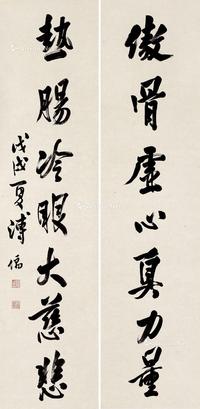 傲骨虛心真力量
熱腸冷眼大慈悲
戊戌夏溥儒